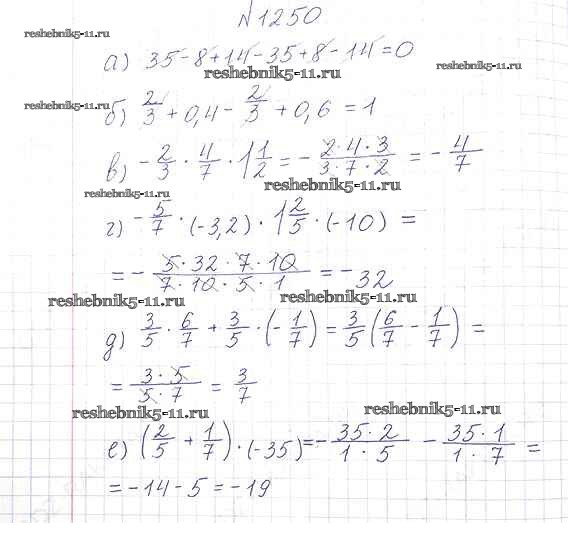 №1250
reshebnik5-11.ru
а) 35-8+14-35+8-14=0
reshebnik5-11.ru reshebnik5-11.ru
reshebnik5-11.ru
б) 2/3 + 0,4 - 2/3 + 0,6 = 1
в) - 2/3 · 4/7 · 1 1/2 = - (2·4·3)/(3·7·2) = - 4/7
reshebnik5-11.ru reshebnik5-11.ru
г) - 5/7 · (-3,2) · 1 2/5 · (-10) =
= - (5·32·7·10)/(7·10·5·1) = -32
reshebnik5-11.ru reshebnik5-11.ru
д) 3/5 · 6/7 + 3/5 · (- 1/7) = 3/5 (6/7 - 1/7) =
= (3·5)/(5·7) = 3/7
reshebnik5-11.ru reshebnik5-11.ru
е) (2/5 + 1/7) · (-35) = - (35·2)/(1·5) - (35·1)/(1·7) =
= -14-5 = -19